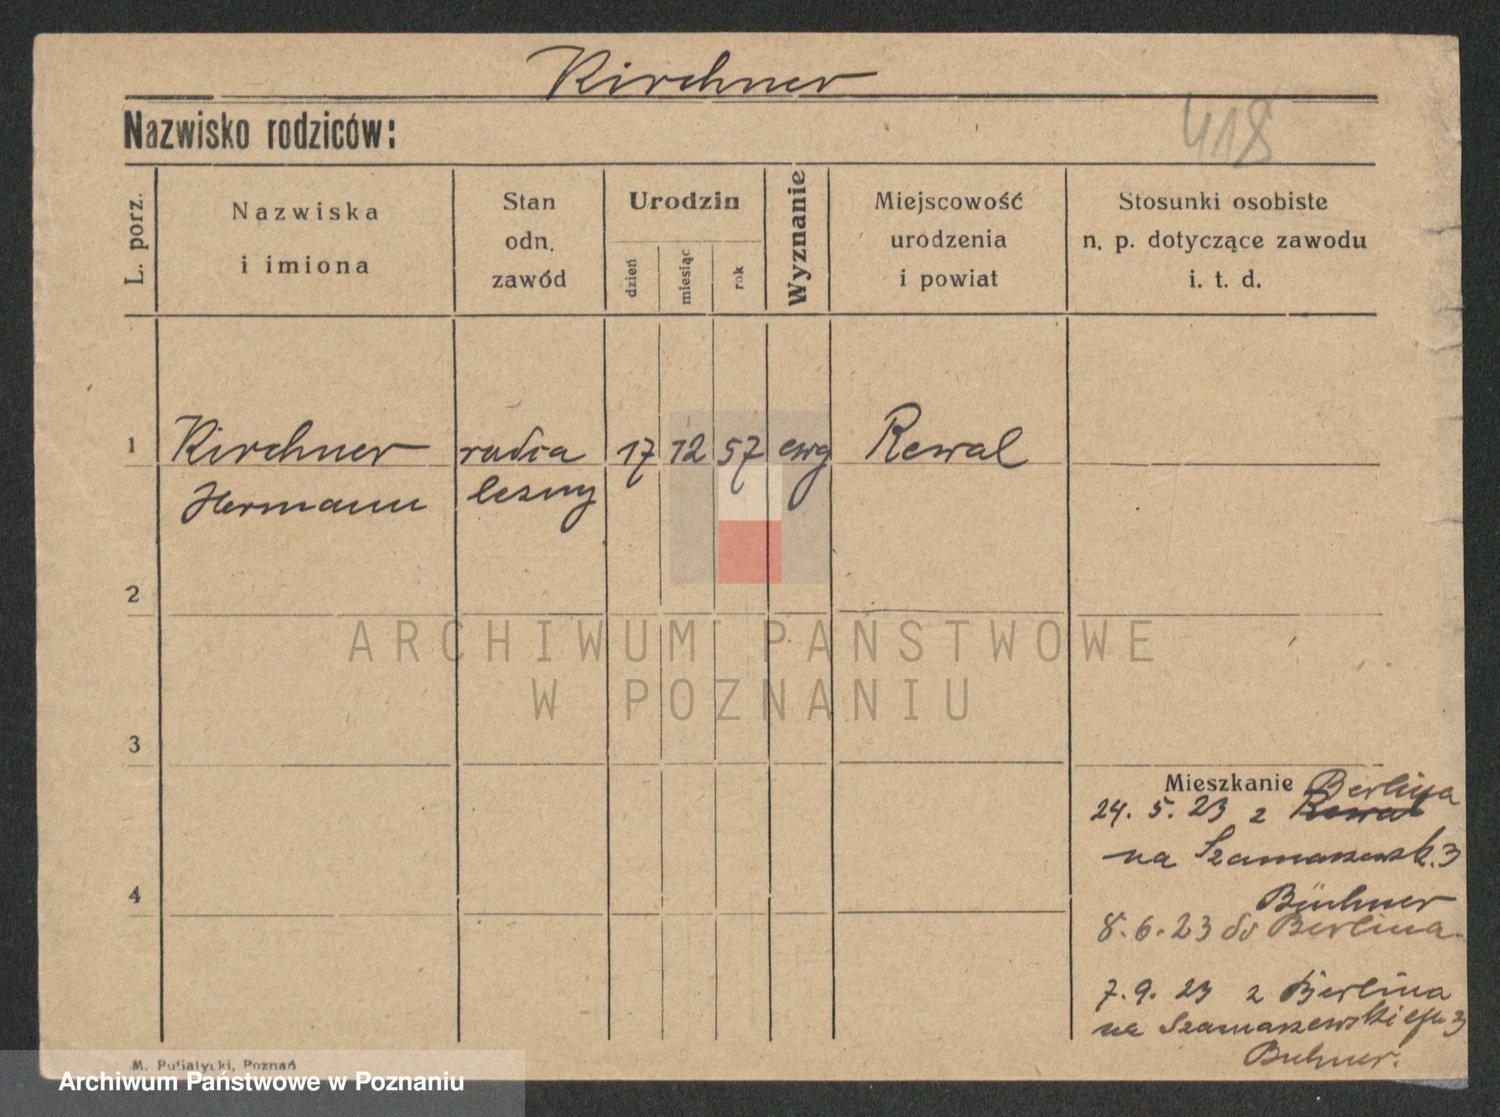 Kirchner
Nazwisko rodziców:
418
L. porz.
Nazwiska
i imiona
Stan
odn.
zawód
Urodzin
dzień
miesiąc
rok
Wyznanie
Miejscowość
urodzenia
i powiat
Stosunki osobiste
n. p. dotyczące zawodu
i. t. d.
1
Kirchner radca 17 12 57 ewg Rewal
Hermann leśny
2
ARCHIWUM PAŃSTWOWE
W POZNANIU
3
Mieszkanie Berlina
24. 5. 23 z Rewal
na Szamarzewsk. 3
Büchner
8. 6. 23 do Berlina.
7. 9. 23 z Berlina
na Szamarzewskiego 3
Buhner.
4
M. Putiatycki, Poznań
Archiwum Państwowe w Poznaniu